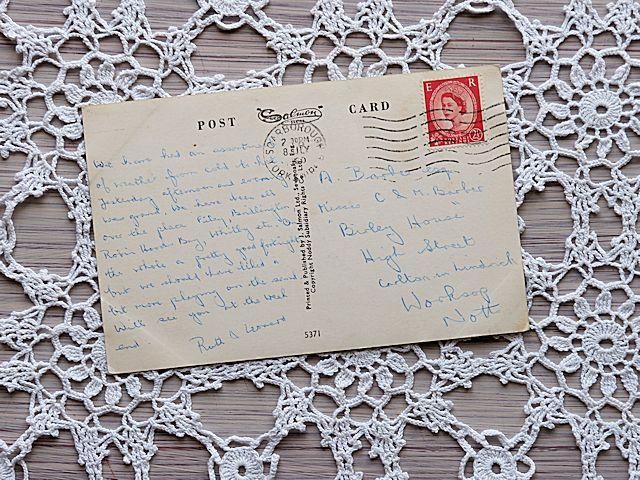 POST Salmon CARD
E R
2½
SCARBOROUGH
7 30PM
8 JLY
YORKSHIRE
We have had an assortment
of weather from cold to hot
Saturday afternoon and evening
was grand. We have been all
over the place Filey Bridlington
Robin Hoods Bay, Whitby etc. On
the whole a pretty good fortnight
but we should have liked a
bit more playing on the sand
Will see you at the week
end.
Ruth & Leonard
Printed & Published by J. Salmon Ltd., Sevenoaks
Copyright Noddy Subsidiary Rights Co. Ltd.
5371
A.
Misses C & M. Barber
High Street
Carlton in Lindrick
Worksop
Notts